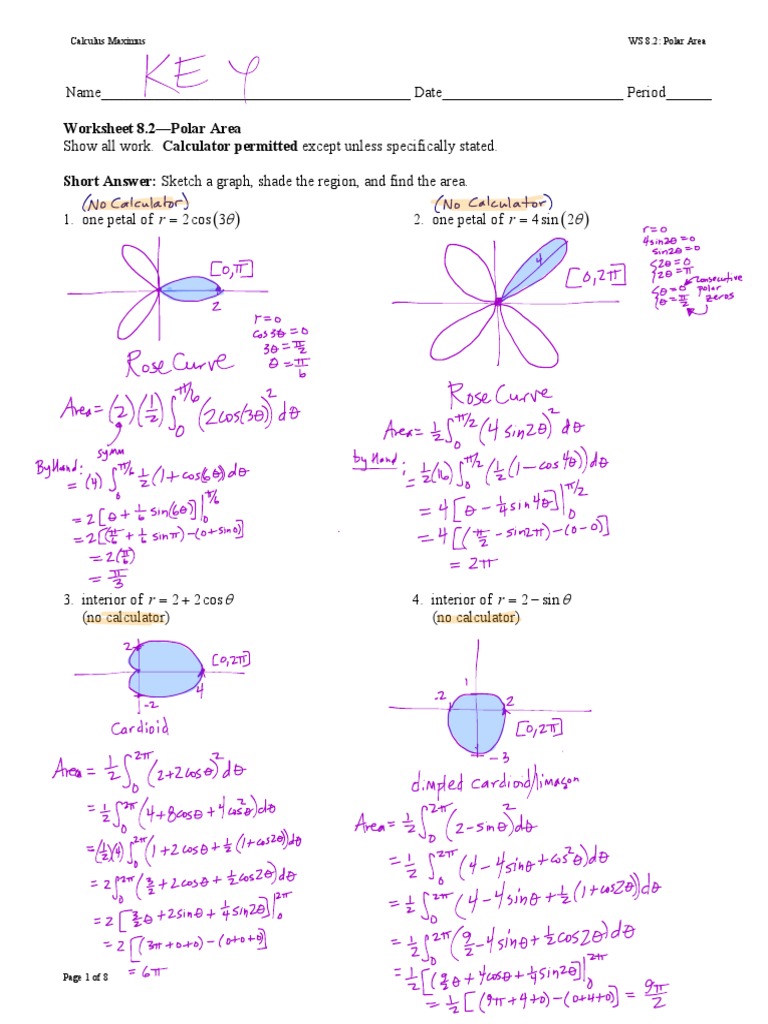 Calculus Maximus WS 8.2: Polar Area
KEY
Name Date Period
Worksheet 8.2—Polar Area
Show all work. Calculator permitted except unless specifically stated.
Short Answer: Sketch a graph, shade the region, and find the area.
(No Calculator)
1. one petal of r = 2cos(3θ)
[0,π]
2
r=0
cos3θ=0
3θ=π/2
θ=π/6
Rose Curve
Area=(2)(1/2)∫₀^π/6 (2cos(3θ))²dθ
symm
By Hand:
=(4)∫₀^π/6 1/2(1+cos(6θ))dθ
=2[θ+1/6 sin(6θ)]|₀^π/6
=2[(π/6+1/6 sinπ)-(0+sin0)]
=2(π/6)
=π/3
(No Calculator)
2. one petal of r = 4sin(2θ)
4
[0,2π]
r=0
4sin2θ=0
sin2θ=0
{2θ=0
{2θ=π
{θ=0
{θ=π/2
consecutive
polar
zeros
Rose Curve
Area=1/2∫₀^π/2 (4 sin2θ)²dθ
by Hand:
=1/2(16)∫₀^π/2 (1/2(1-cos4θ))dθ
=4[θ-1/4 sin4θ]|₀^π/2
=4[(π/2-sin2π)-(0-0)]
=2π
3. interior of r = 2 + 2cosθ
(no calculator)
2
[0,2π]
4
-2
Cardioid
Area=1/2∫₀^2π (2+2cosθ)²dθ
=1/2∫₀^2π (4+8cosθ+4cos²θ)dθ
=(1/2)(4)∫₀^2π (1+2cosθ+1/2(1+cos2θ))dθ
=2∫₀^2π (3/2+2cosθ+1/2cos2θ)dθ
=2[3/2θ+2sinθ+1/4sin2θ]|₀^2π
=2[(3π+0+0)-(0+0+0)]
=6π
4. interior of r = 2 − sinθ
(no calculator)
1
-2
2
[0,2π]
-3
dimpled cardioid/limaçon
Area=1/2∫₀^2π (2-sinθ)²dθ
=1/2∫₀^2π (4-4sinθ+cos²θ)dθ
=1/2∫₀^2π (4-4sinθ+1/2(1+cos2θ))dθ
=1/2∫₀^2π (9/2-4sinθ+1/2cos2θ)dθ
=1/2[(9/2θ+4cosθ+1/4sin2θ]|₀^2π
=1/2[(9π+4+0)-(0+4+0)]=9π/2
Page 1 of 8